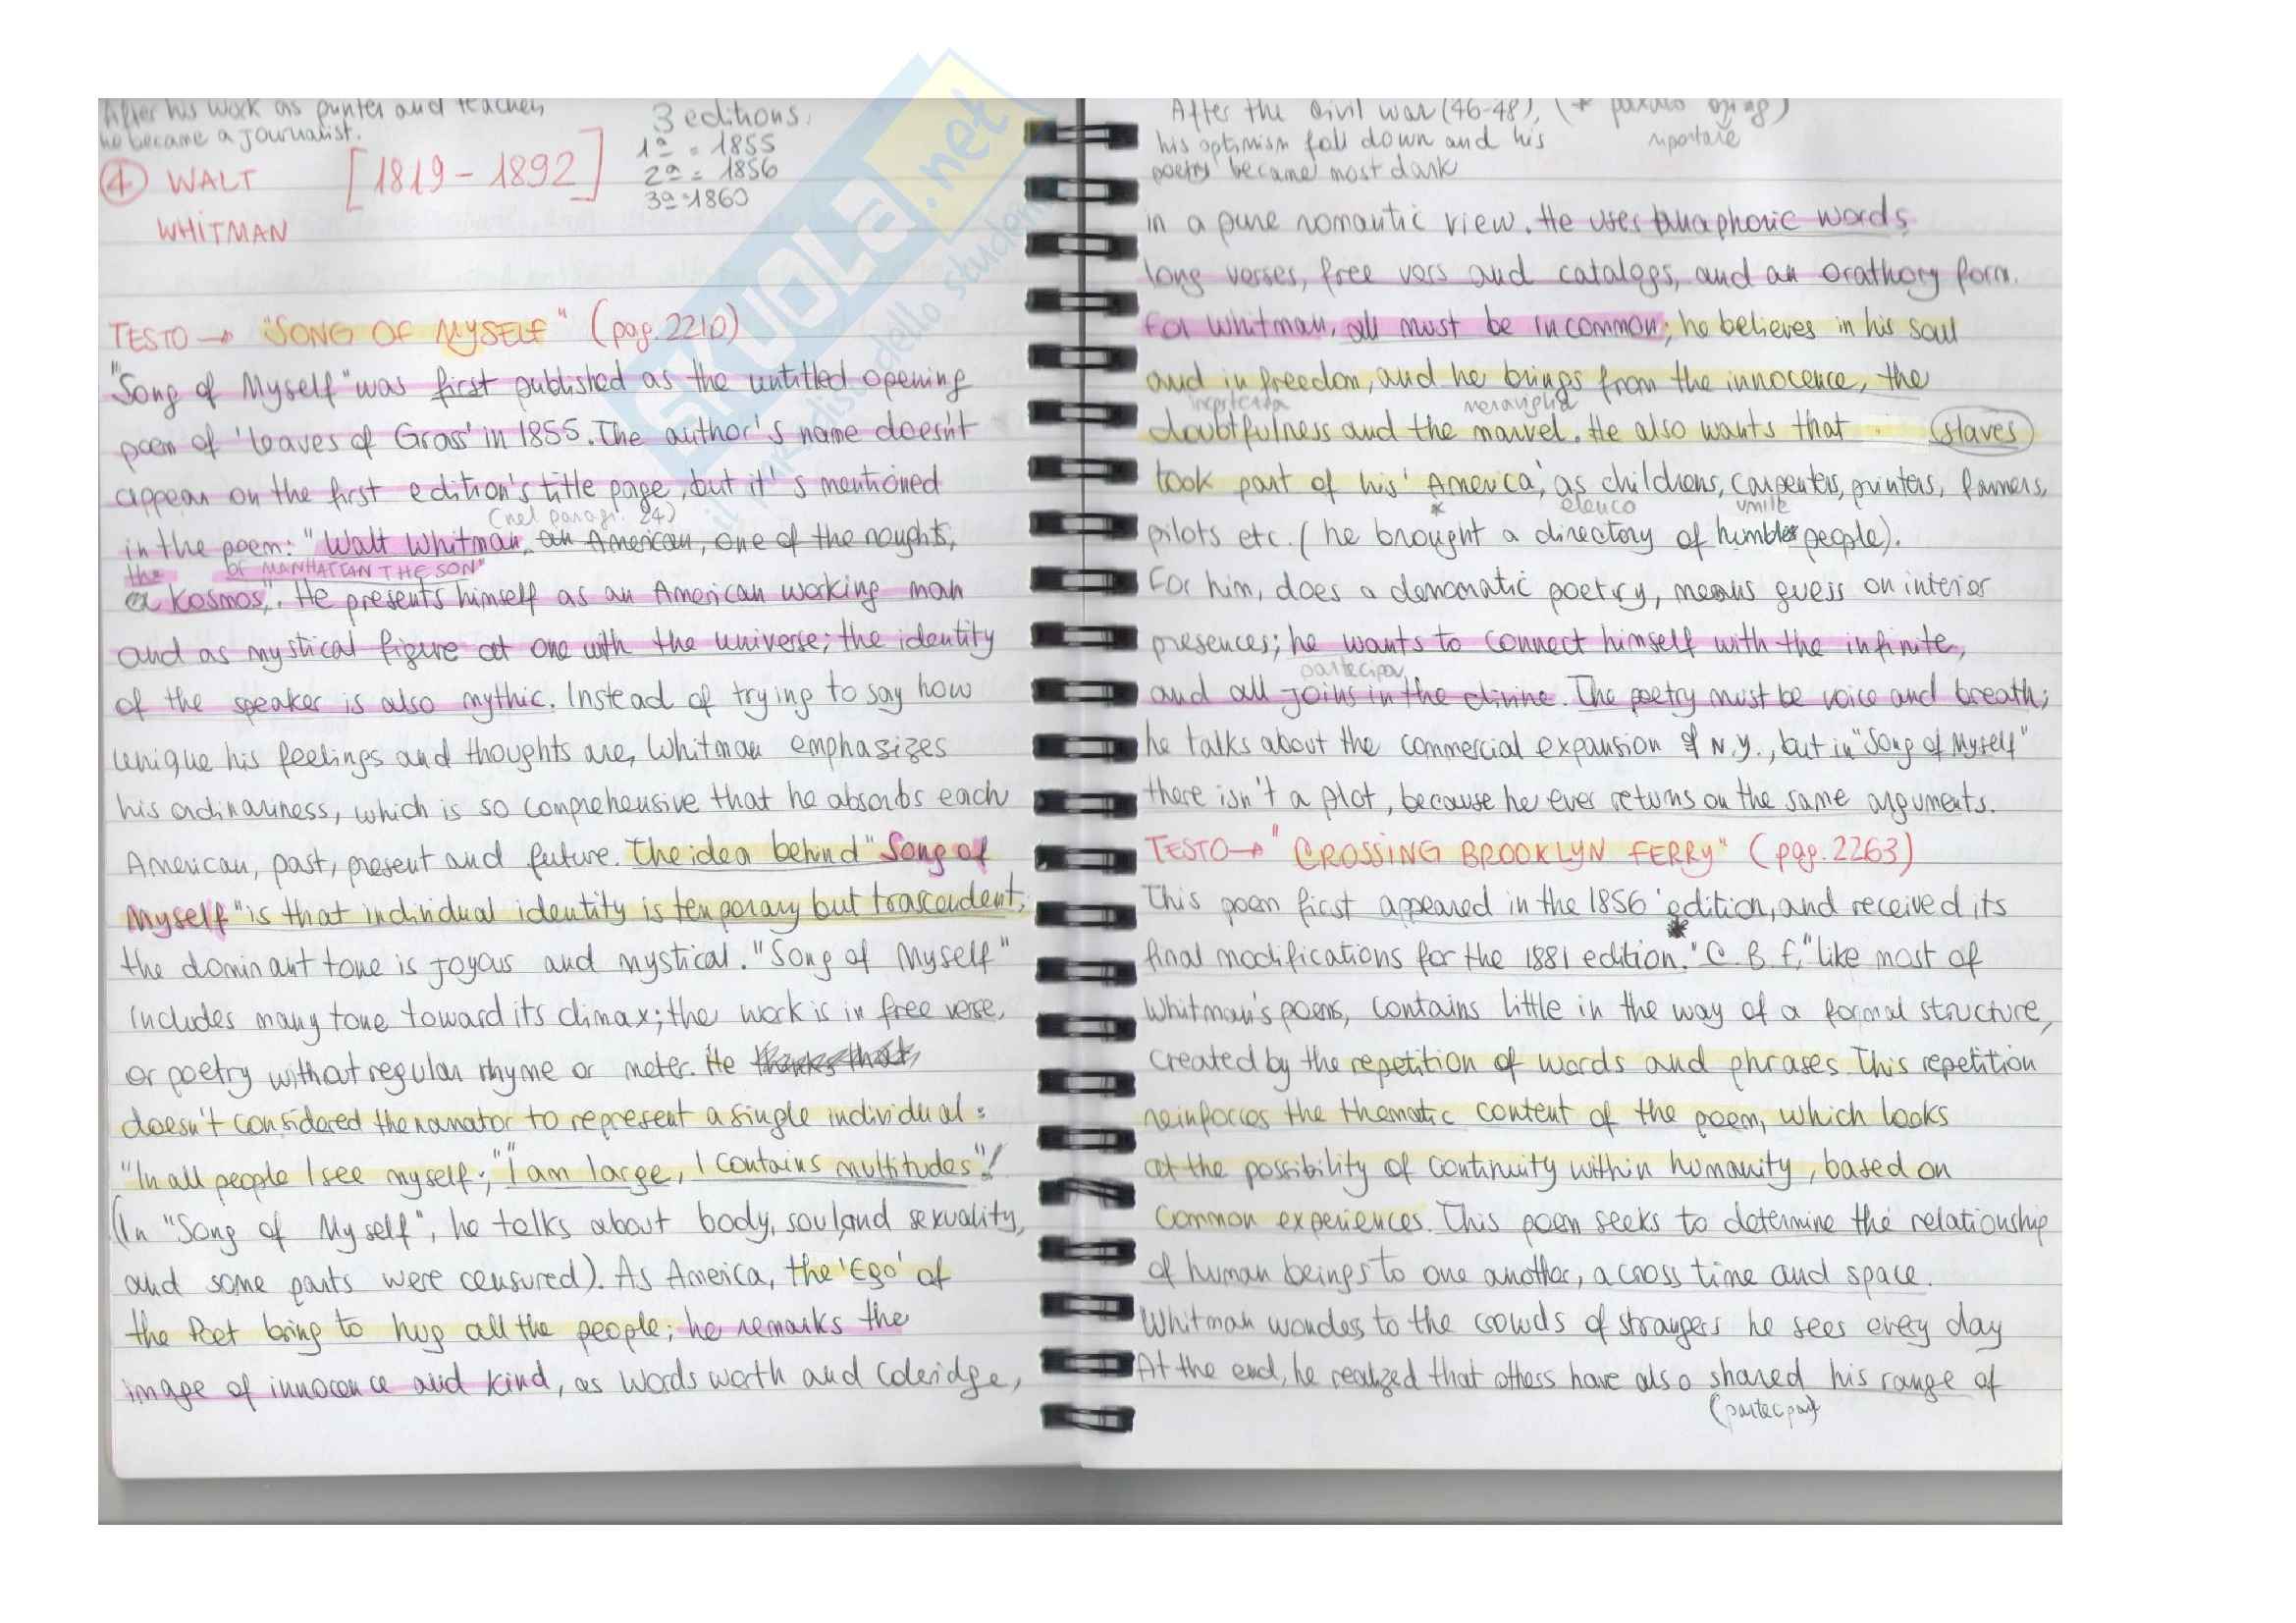 After his work as printer and teacher,
he became a journalist.
3 editions:
1ª = 1855
2ª = 1856
3ª = 1860
④ WALT [1819-1892]
WHITMAN
TESTO → "SONG OF MYSELF" (pag. 2210)
"Song of Myself" was first published as the untitled opening
poem of 'Leaves of Grass' in 1855. The author's name doesn't
appear on the first edition's title page, but it's mentioned
(nel paragr. 24)
in the poem: "Walt Whitman, an American, one of the roughs,
the OF MANHATTAN THE SON"
a Kosmos,". He presents himself as an American working man
and as mystical figure at one with the universe; the identity
of the speaker is also mythic. Instead of trying to say how
unique his feelings and thoughts are, Whitman emphasizes
his ordinariness, which is so comprehensive that he absorbs each
American, past, present and future. The idea behind "Song of
Myself" is that individual identity is temporary but trascendent;
the dominant tone is joyous and mystical. "Song of Myself"
includes many tone toward its climax; the work is in free verse,
or poetry without regular rhyme or meter. He
doesn't considered the narrator to represent a single individual:
"In all people I see myself; "I am large, I contains multitudes"!
(In "Song of Myself", he talks about body, soul, and sexuality,
and some parts were censured). As America, the 'Ego' of
the Poet bring to hug all the people; he remarks the
image of innocence and kind, as Wordsworth and Coleridge,
After the civil war (46-48),
his optimism fall down and his riportare
poetry became most dark
in a pure romantic view. He uses anaphoric words,
long verses, free vers and catalogs, and an orathory form.
For Whitman, all must be in common; he believes in his soul
and in freedon, and he brings from the innocence, the
incertezza meraviglia
doubtfulness and the marvel. He also wants that slaves
took part of his 'America', as childrens, carpenters, printers, farmers,
* elenco umile
pilots etc. (he brought a directory of humble people).
For him, does a democratic poetry, means guess on interior
presences; he wants to connect himself with the infinite,
partecipa
and all joins in the divine. The poetry must be voice and breath;
he talks about the commercial expansion of N.Y., but in "Song of Myself"
there isn't a plot, because he ever returns on the same arguments.
TESTO → "CROSSING BROOKLYN FERRY" (pag. 2263)
This poem first appeared in the 1856 edition, and received its
final modifications for the 1881 edition. "C. B. F," like most of
Whitman's poems, contains little in the way of a formal structure,
created by the repetition of words and phrases. This repetition
reinforces the thematic content of the poem, which looks
at the possibility of continuity within humanity, based on
common experiences. This poem seeks to determine the relationship
of human beings to one another, across time and space.
Whitman wondes to the crowds of strangers he sees every day
At the end, he realized that others have also shared his range of
(partecipan)
SKUOLA.net
il paradiso dello studente